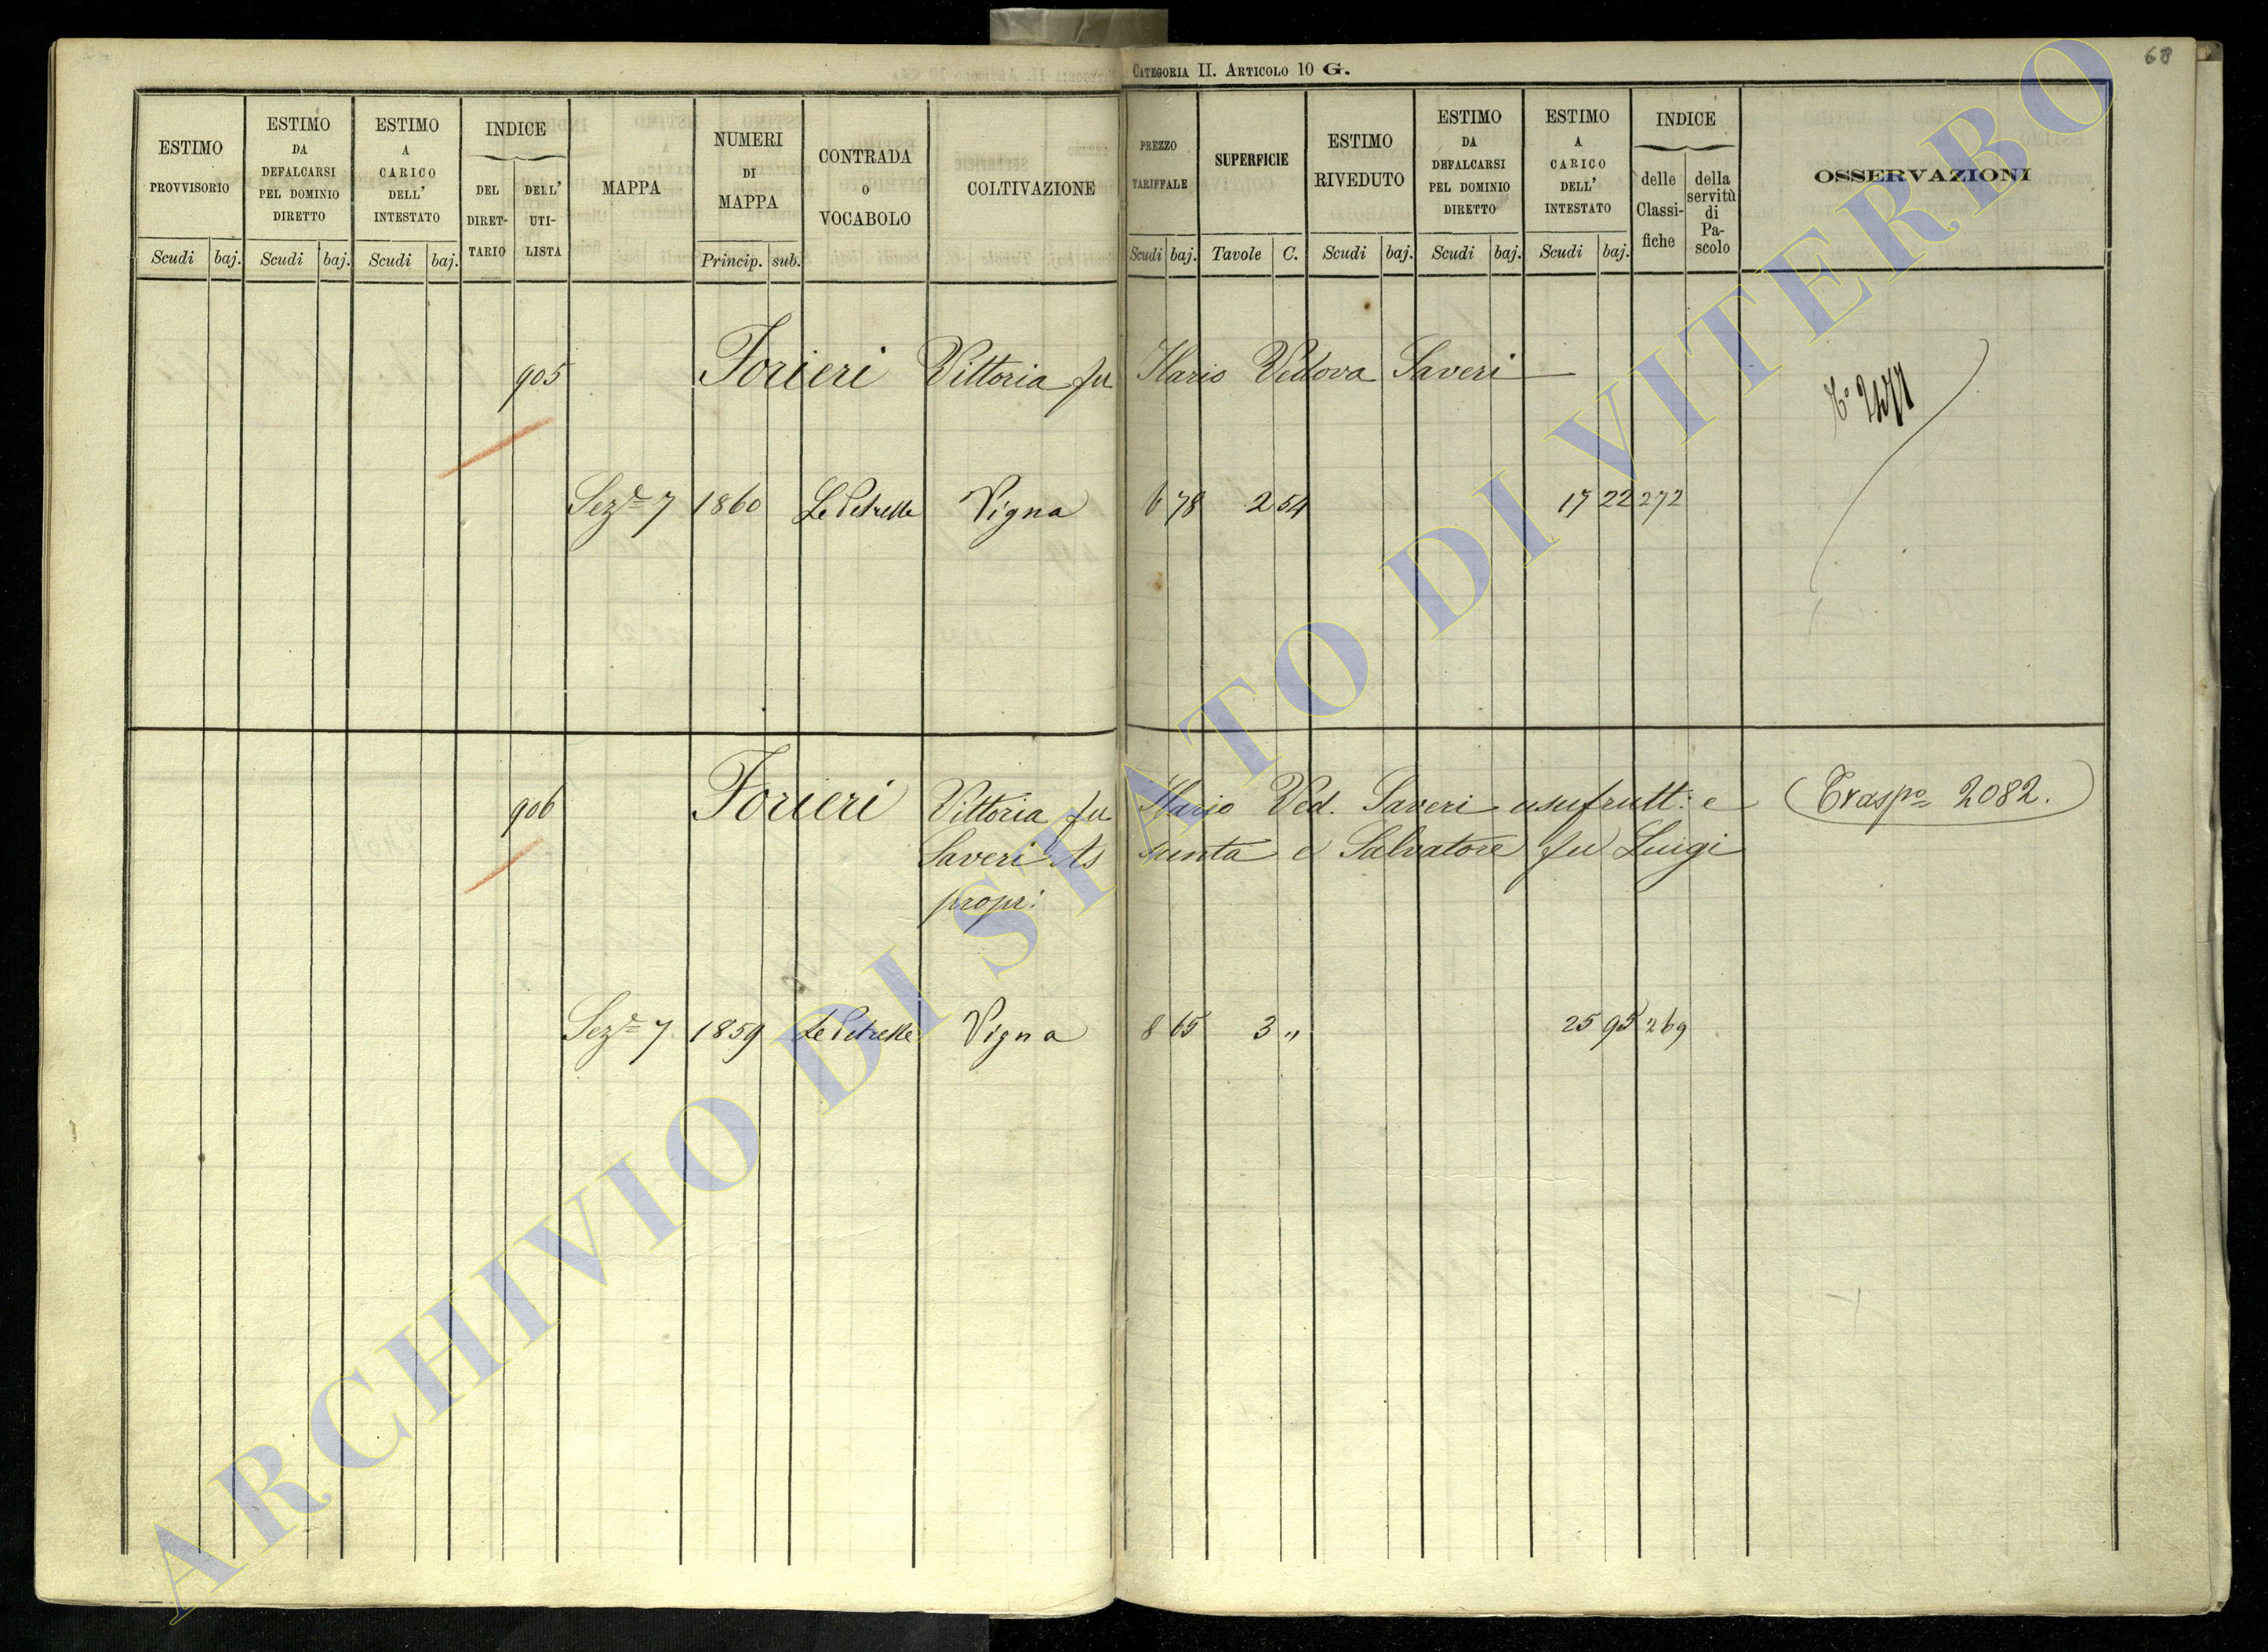 CATEGORIA II. ARTICOLO 10 G.
68
ESTIMO PROVVISORIO
Scudi baj.
ESTIMO DA DEFALCARSI PEL DOMINIO DIRETTO
Scudi baj.
ESTIMO A CARICO DELL' INTESTATO
Scudi baj.
INDICE
DEL DIRET-TARIO
DELL' UTI-LISTA
MAPPA
NUMERI DI MAPPA
Princip. sub.
CONTRADA O VOCABOLO
COLTIVAZIONE
PREZZO TARIFFALE
Scudi baj.
SUPERFICIE
Tavole C.
ESTIMO RIVEDUTO
Scudi baj.
ESTIMO DA DEFALCARSI PEL DOMINIO DIRETTO
Scudi baj.
ESTIMO A CARICO DELL' INTESTATO
Scudi baj.
INDICE
delle Classi-fiche
della servitù di Pa-scolo
OSSERVAZIONI
905 Forieri Vittoria fu Ilario Vedova Saveri
Sez.e 7 1860 Le Petrelle Vigna 6 78 2 54 17 22 272
906 Forieri Vittoria fu Ilario Ved. Saveri usufrutt: e (Traspo 2082.)
Saveri Assunta e Salvatore fu Luigi
propr:
Sez.e 7 1859 Le Petrelle Vigna 8 65 3 " 25 95 269
ARCHIVIO DI STATO DI VITERBO